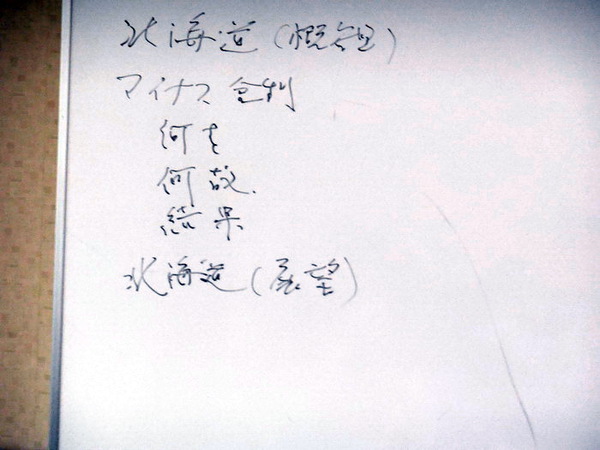 北海道(概観)
マイナス金利
何を
何故.
結果
北海道(展望)